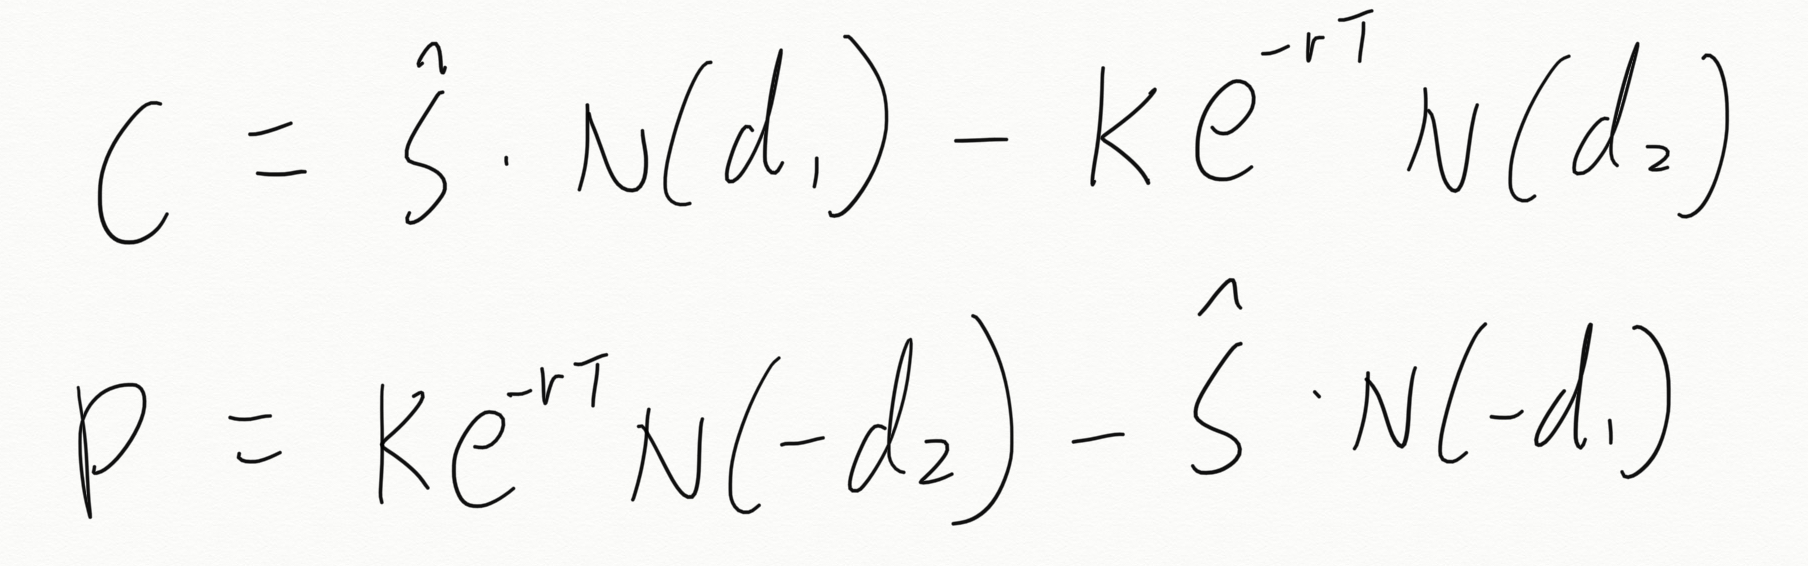 C = Ŝ · N(d₁) − Ke^{−rT} N(d₂)
P = Ke^{−rT} N(−d₂) − Ŝ · N(−d₁)